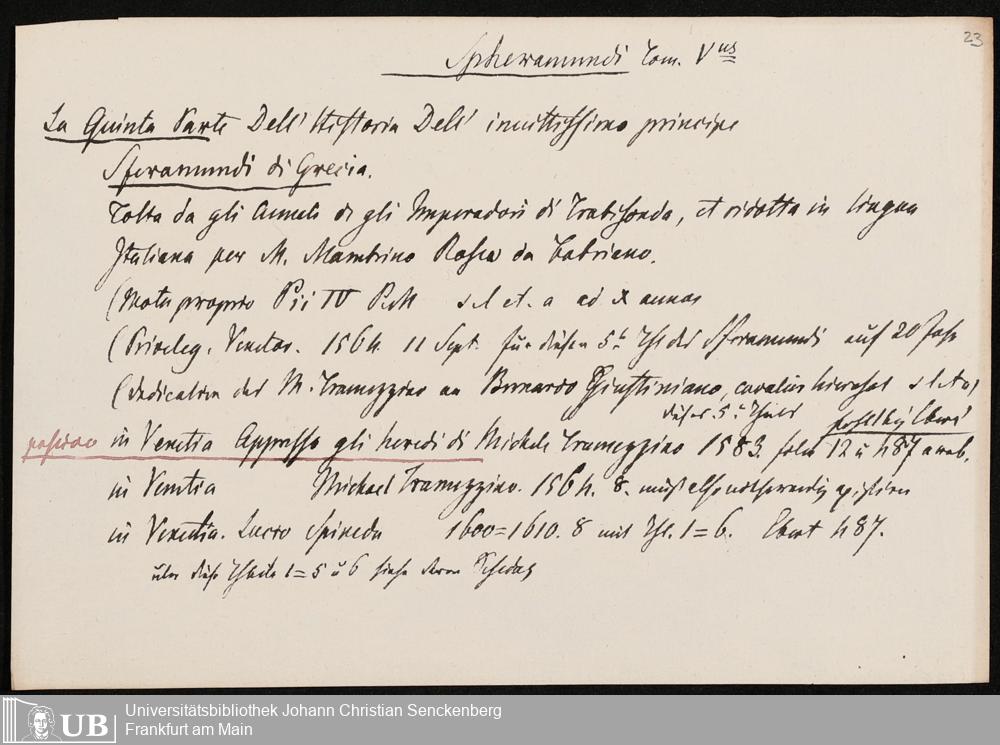 23
Spheramundi Tom. Vus
La Quinta Parte Dell' Historia Dell' invittissimo principe
Sferamundi di Grecia.
Tolta da gli Annali de gli Imperadori di Trabisonda, et ridotta in lingua
Italiana per M. Mambrino Rosea da Fabriano.
(Motu proprio Pii IV s l et. a ad X annos
(Privileg. Venetor. 1564. 11 Sept. für diesen 5t Thl des Sferamundi auf 20 Jahr
(Dedication des M. Tramezzino an Bernardo Giustiniano, s l et a)
dieser 5t Theil
fehlt bey Ebert
possideo in Venetia Appresso gli heredi di Michele Tramezzino 1583. folio 12 u 487 arab.
in Venetia Michael Tramezzino. 1564. 8. muß also nothwendig existiren
in Venetia. Lucio Spineda 1600=1610. 8 mit Thl. 1=6. Ebert 487.
über diese Theile 1=5 u 6 siehe deren Schedas
UB
Universitätsbibliothek Johann Christian Senckenberg
Frankfurt am Main